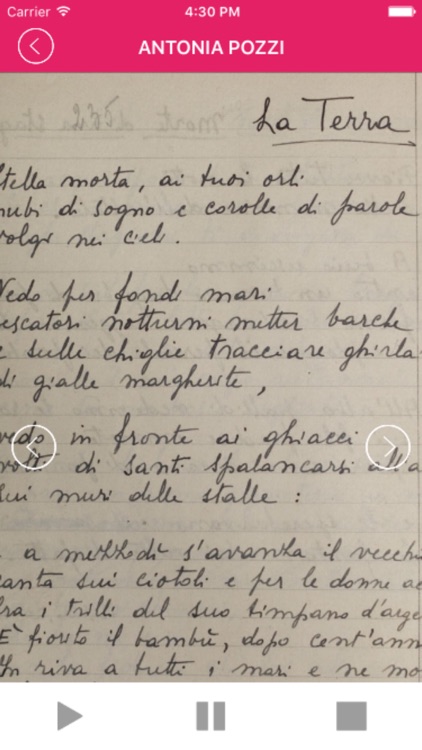 Carrier 4:30 PM
ANTONIA POZZI
La Terra
tella morta, ai tuoi orli
nubi di sogno e corolle di parole
olgi nei cieli.
Vedo per fondi mari
escatori notturni metter barche
e sulle chiglie tracciare ghirla
di gialle margherite,
vedo in fronte ai ghiacci
volti di santi spalancarsi all'a
sui muri delle stalle:
a mezzodì s'avanza il vecchi
canta sui ciotoli e per le donne ac
fra i trilli del suo timpano d'arge
È fiorito il bambù, dopo cent'ann
In riva a tutti i mari e ne mo